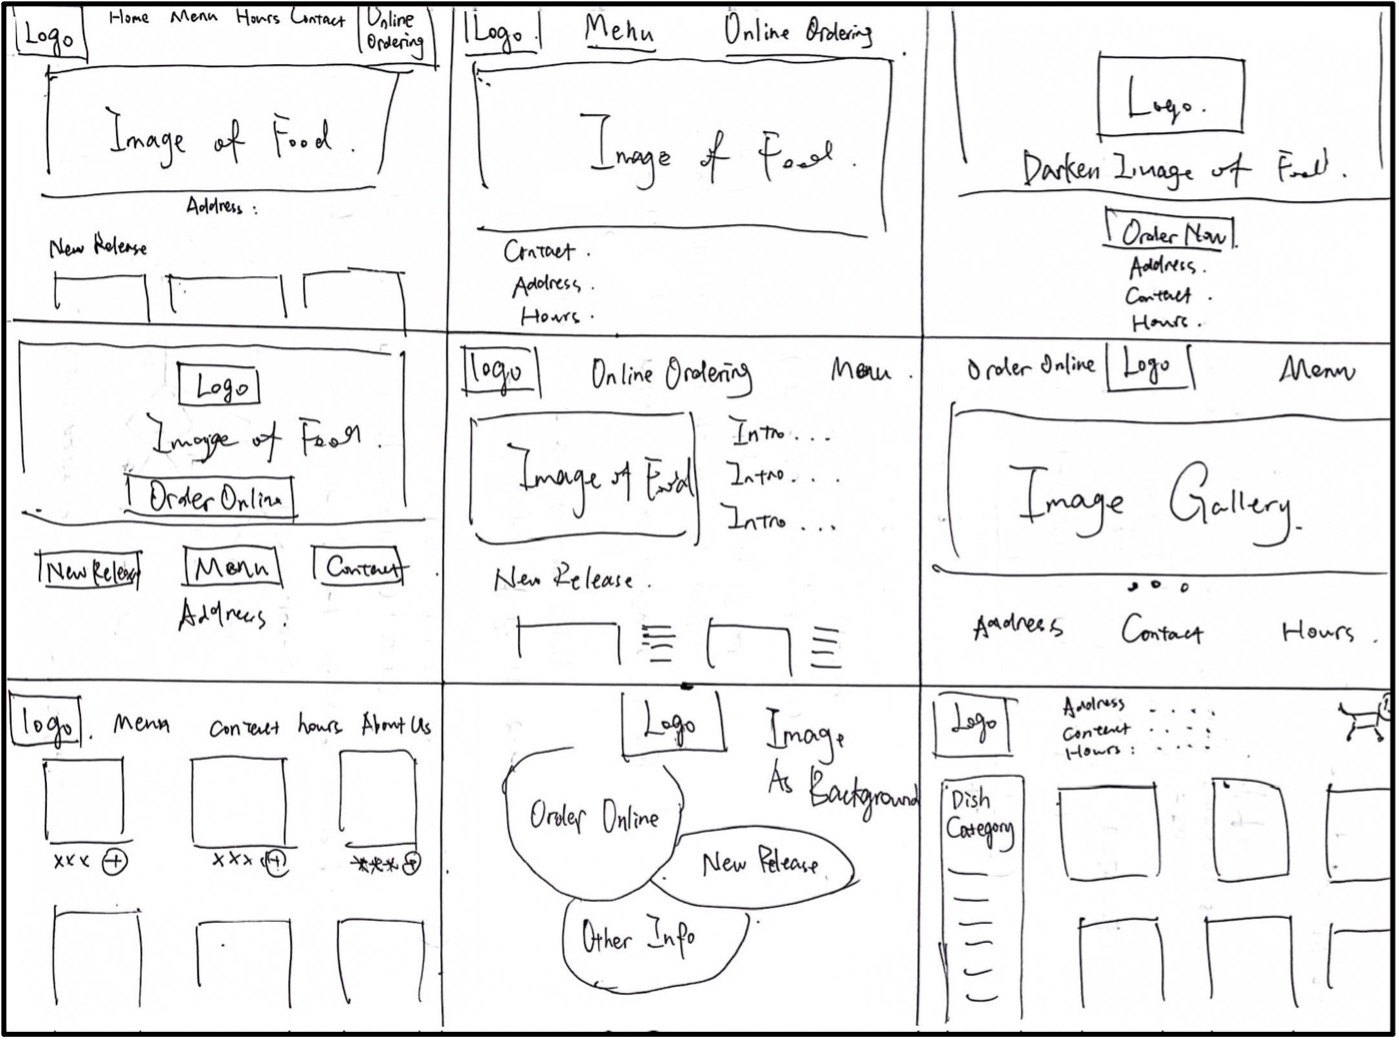 Logo
Home Menu Hours Contact
Online
Ordering
Image of Food.
Address:
New Release
Logo.
Menu
Online Ordering.
Image of Food.
Contact.
Address.
Hours.
Logo.
Darken Image of Food.
Order Now
Address.
Contact.
Hours.
Logo
Image of Food.
Order Online
New Release
Menu
Contact
Address.
logo
Online Ordering
Menu.
Image of Food
Intro...
Intro...
Intro...
New Release.
Order Online
Logo
Menu
Image Gallery.
Address
Contact
Hours.
logo.
Menu
Contact
hours
About Us
xxx +
xxx +
xxx +
Logo
Image
As Background
Order Online
New Release
Other Info
Logo
Address - . . .
Contact - . . .
Hours: - . . .
Dish
Category